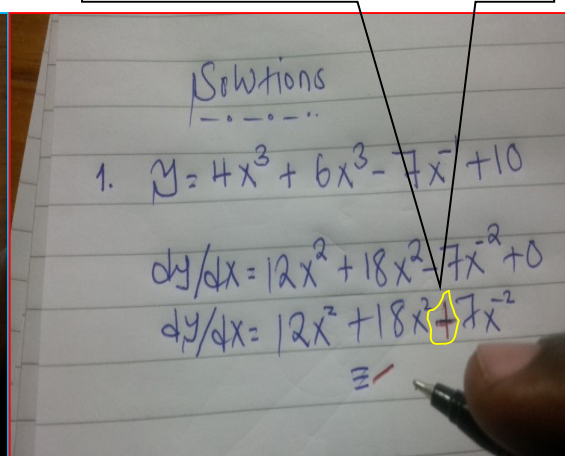 Solutions
1. y = 4x³ + 6x³ - 7x⁻¹ + 10
dy/dx = 12x² + 18x² - 7x⁻² + 0
dy/dx = 12x² + 18x² + 7x⁻²